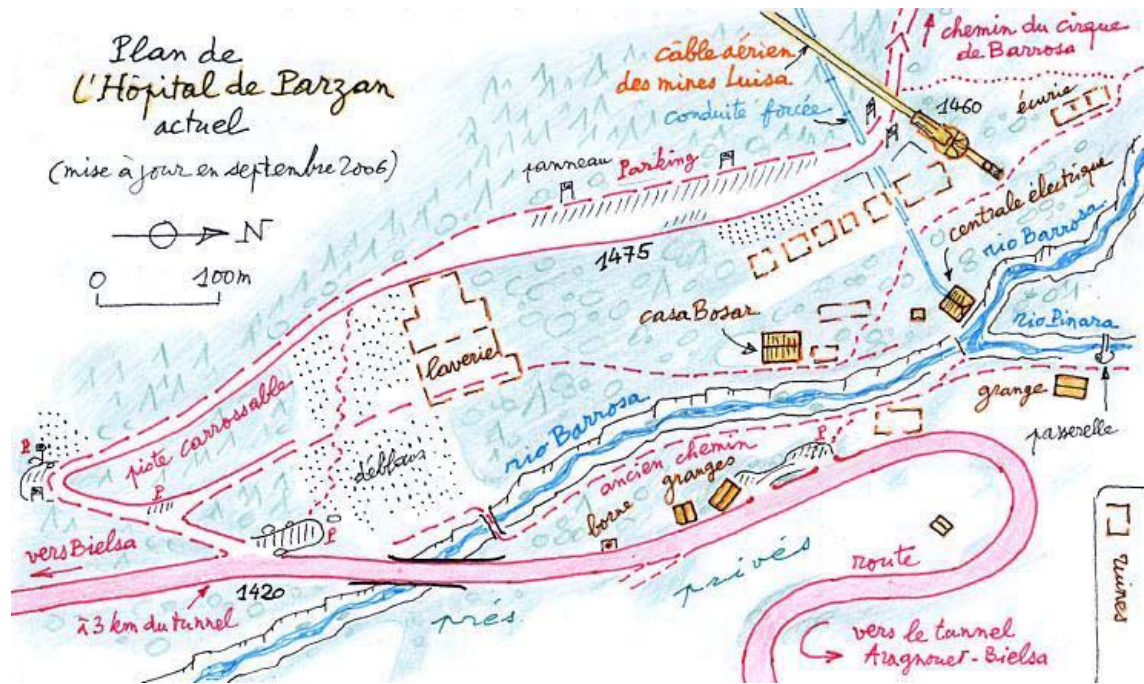 Plan de
L'Hôpital de Parzan
actuel
(mise à jour en septembre 2006)
N
0 100m
câble aérien
des mines Luisa
conduite forcée
chemin du cirque
de Barrosa
1460
écurie
panneau
Parking
1475
centrale électrique
rio Barrosa
rio Pinara
casa Bosar
laverie
grange
passerelle
piste carrossable
P
P
P
déblais
rio Barrosa
ancien chemin
P
granges
borne
vers Bielsa
1420
à 3 km du tunnel
prés
privés
route
vers le tunnel
Aragnouet-Bielsa
ruines